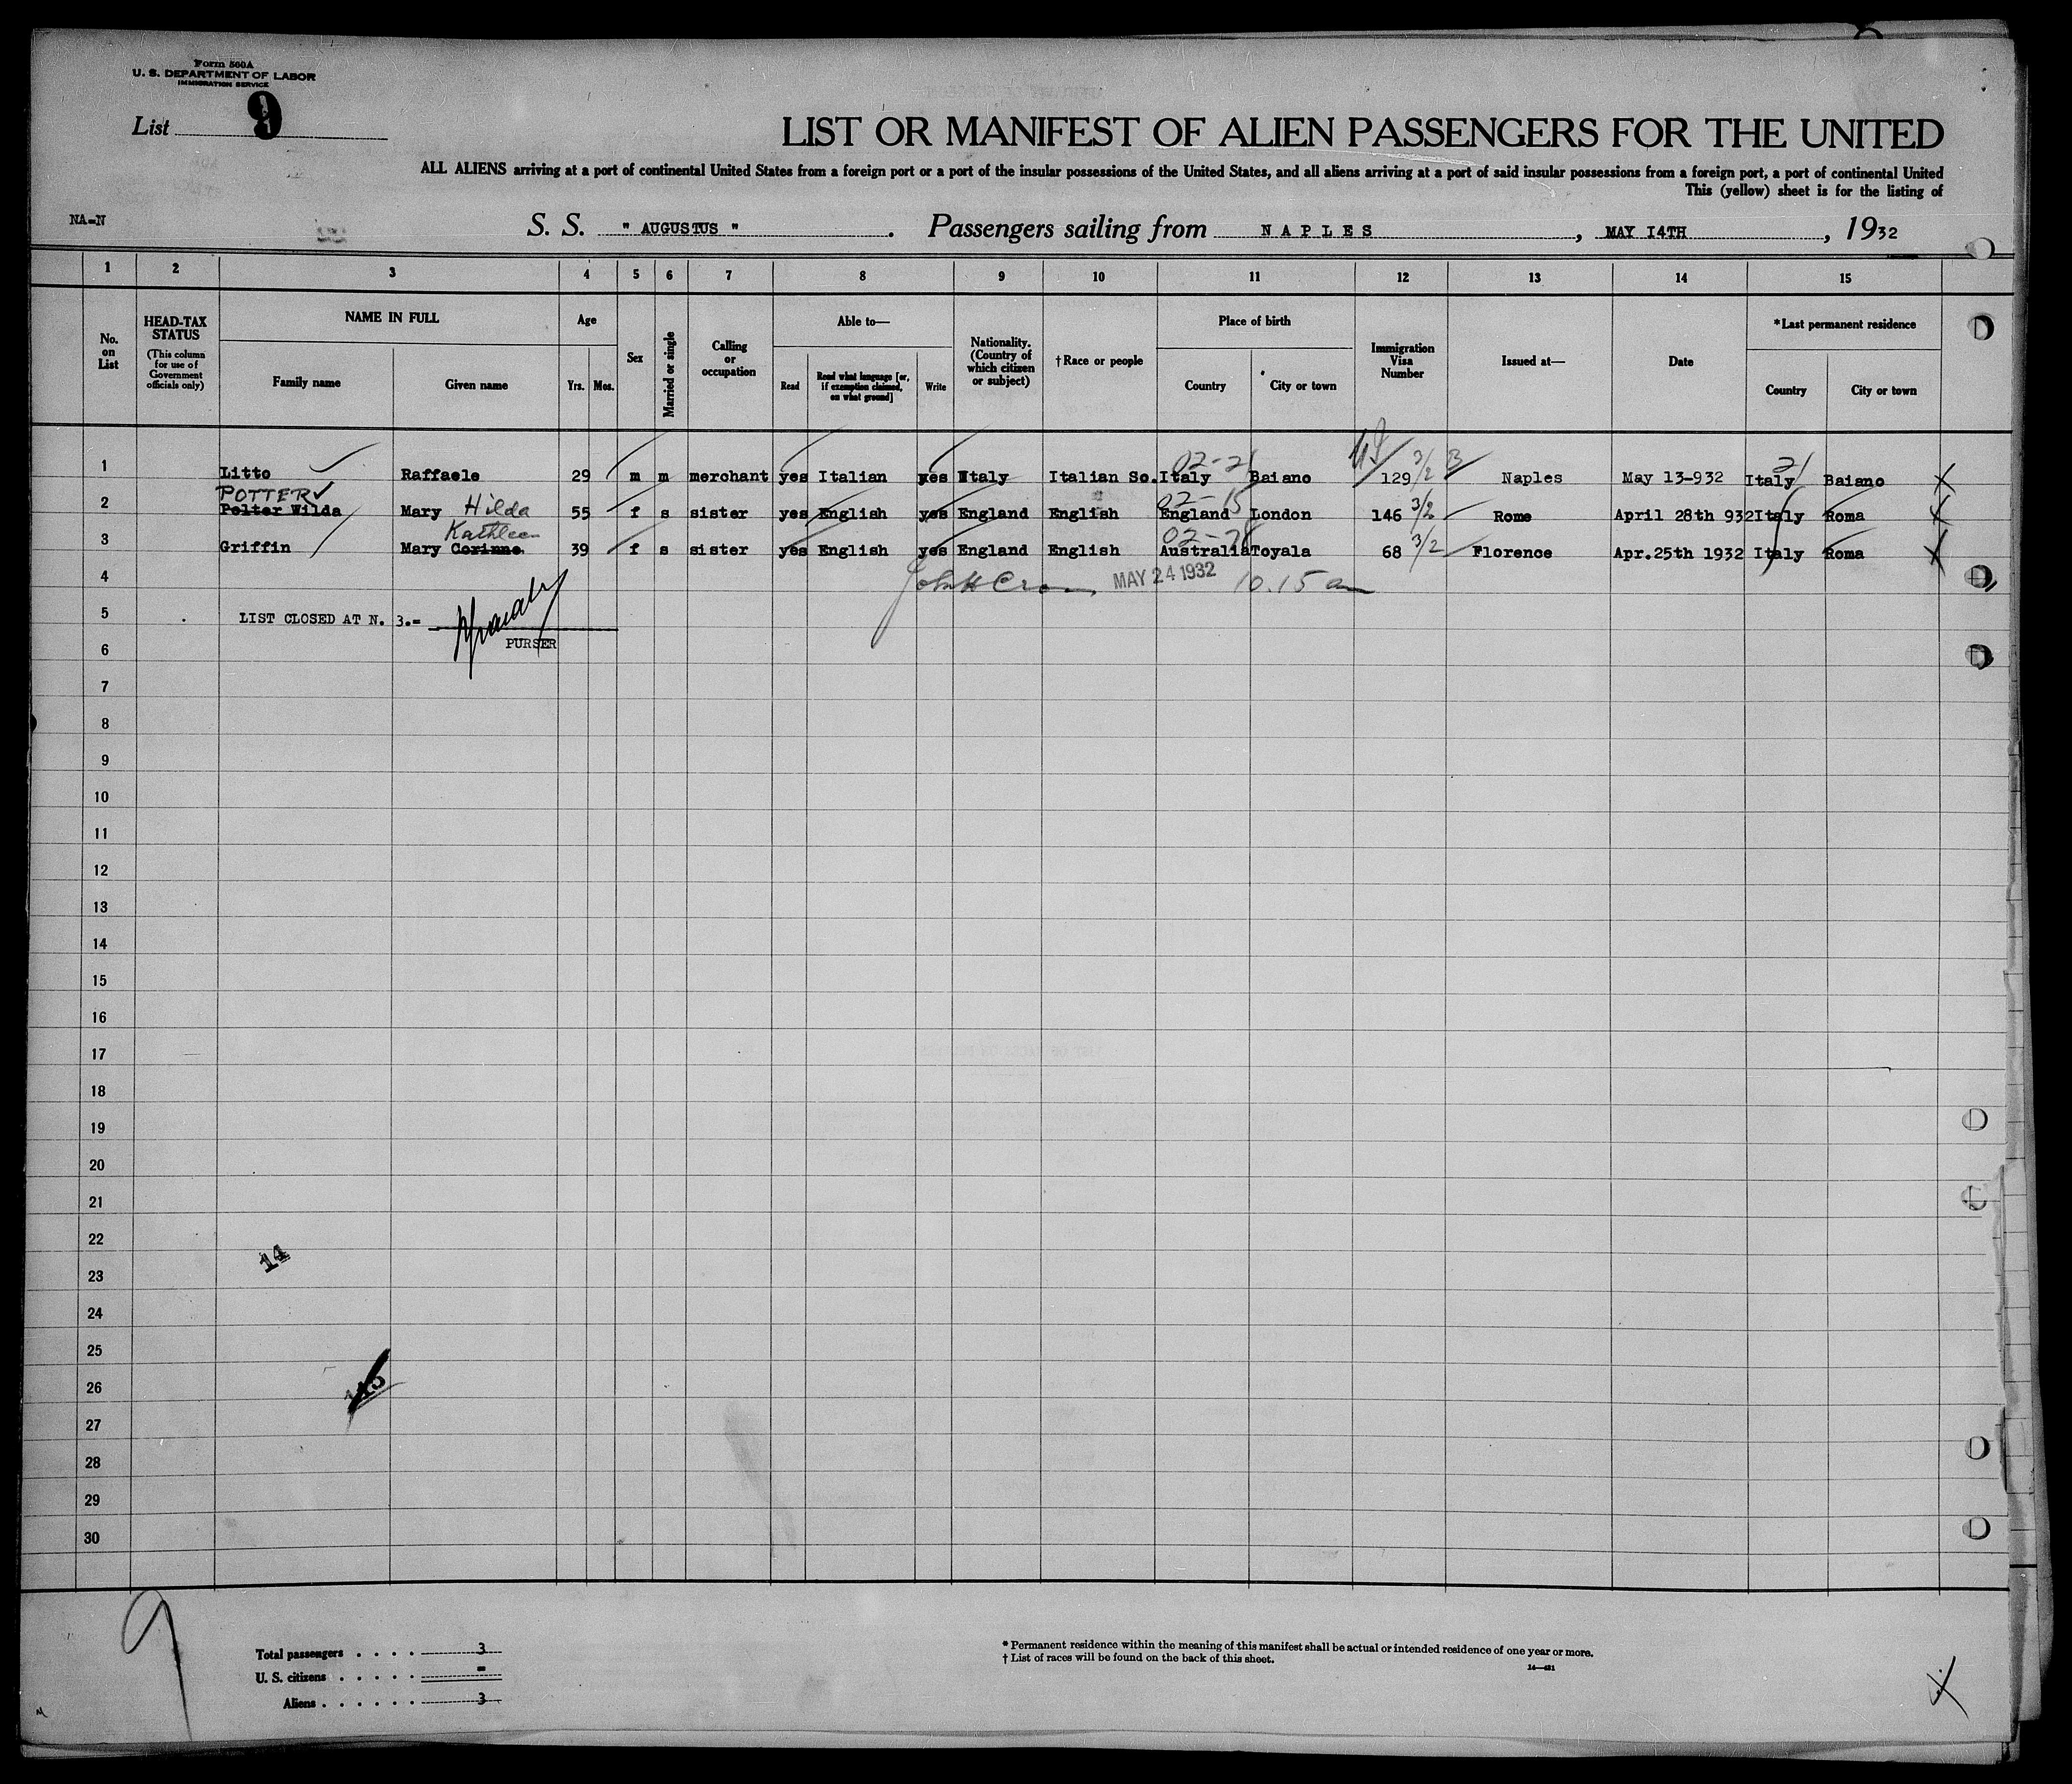 Form 500A
U. S. DEPARTMENT OF LABOR
IMMIGRATION SERVICE
List 9
LIST OR MANIFEST OF ALIEN PASSENGERS FOR THE UNITED
ALL ALIENS arriving at a port of continental United States from a foreign port or a port of the insular possessions of the United States, and all aliens arriving at a port of said insular possessions from a foreign port, a port of continental United
This (yellow) sheet is for the listing of
NA-N
S. S. " AUGUSTUS " . Passengers sailing from NAPLES , MAY I4TH , 1932
1 2 3 4 5 6 7 8 9 10 11 12 13 14 15
No. on List
HEAD-TAX STATUS
(This column for use of Government officials only)
NAME IN FULL
Family name
Given name
Age
Yrs. Mos.
Sex
Married or single
Calling or occupation
Able to—
Read
Read what language [or, if exemption claimed, on what ground]
Write
Nationality. (Country of which citizen or subject)
† Race or people
Place of birth
Country
City or town
Immigration Visa Number
Issued at—
Date
*Last permanent residence
Country
City or town
02-21 3/2 3 21
1 Litto Raffaele 29 m m merchant yes Italian yes Italy Italian So. Italy Baiano 129 Naples May 13-932 Italy Baiano
POTTER Hilda 02-15 3/2
2 Pelter Wilda Mary 55 f s sister yes English yes England English England London 146 Rome April 28th 932 Italy Roma
Kathleen 3/2
3 Griffin Mary Corinne 39 f s sister yes English yes England English Australia Toyala 68 Florence Apr.25th 1932 Italy Roma
4 MAY 24 1932 10.15 am
5 LIST CLOSED AT N. 3.-
PURSER
6
7
8
9
10
11
12
13
14
15
16
17
18
19
20
21
22
14
23
24
25
26
27
28
29
30
9
Total passengers . . . . 3
U. S. citizens . . . . . -
Aliens . . . . . . 3
* Permanent residence within the meaning of this manifest shall be actual or intended residence of one year or more.
† List of races will be found on the back of this sheet.
14—421